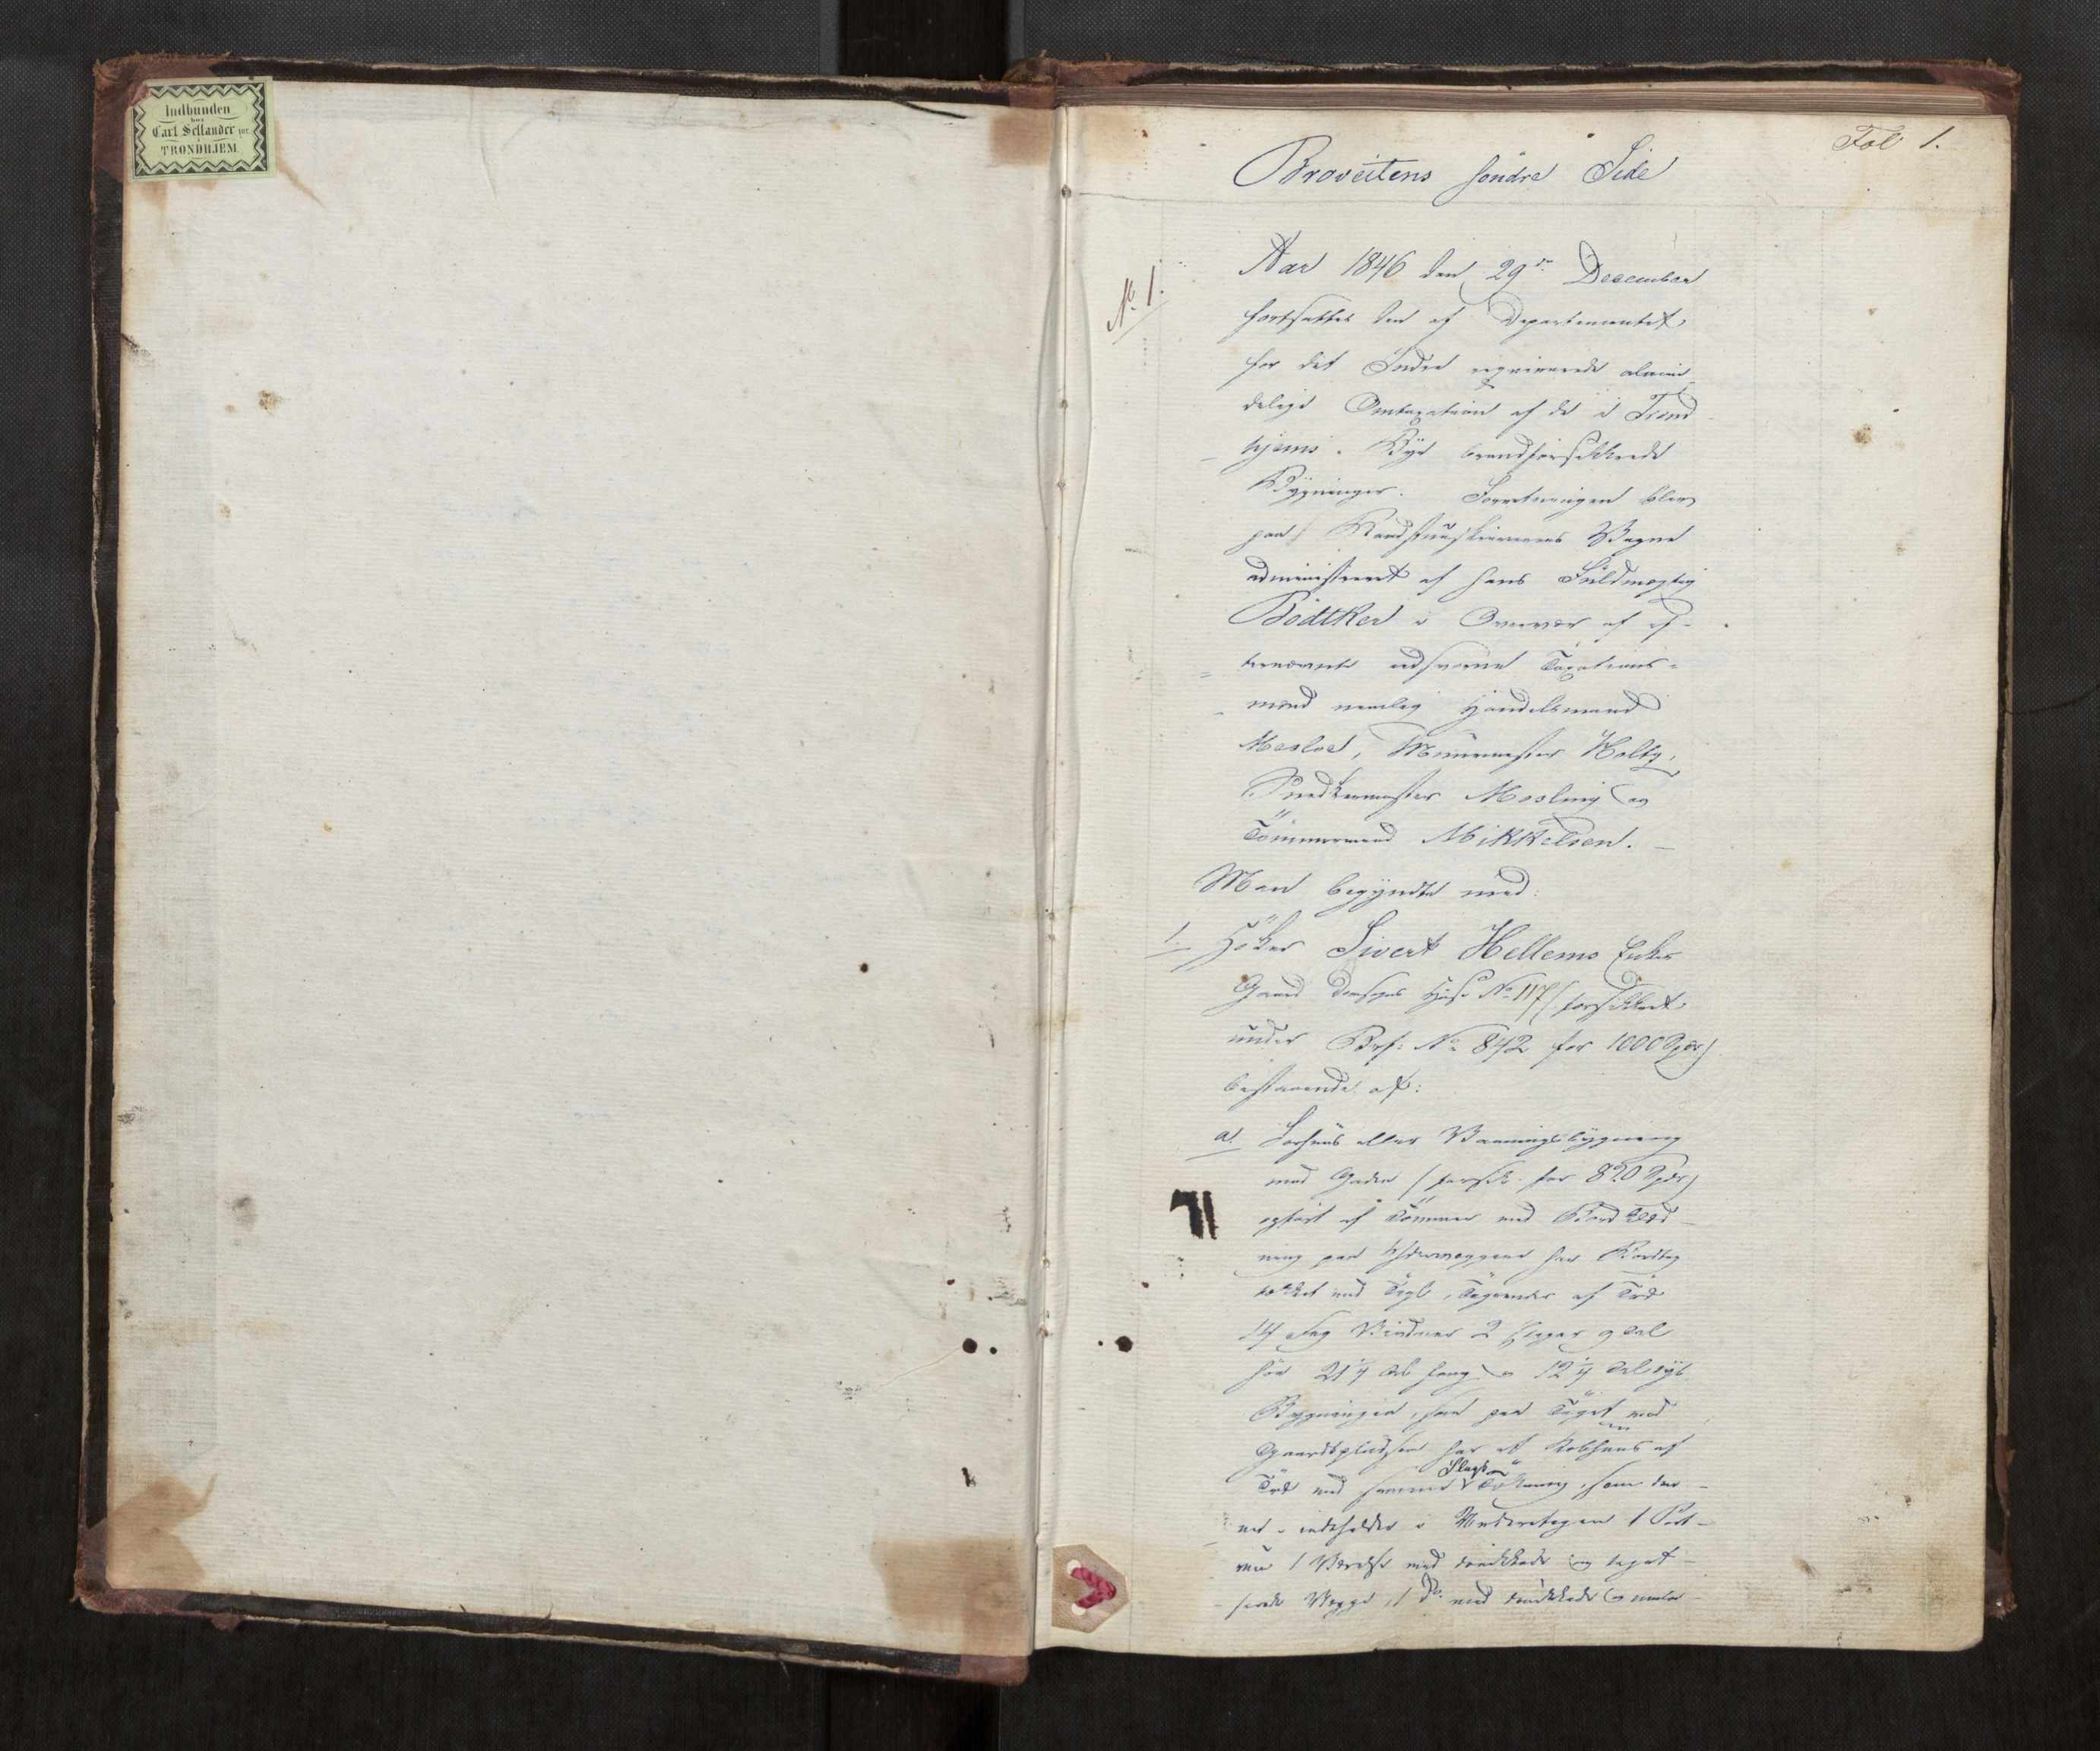 Indbunden
hos
Carl Sellander jnr.
TRONDHJEM.
Fol 1.
Braveitens söndre Side
No 1.
Aar 1846 den 29de December
fortsattes den af Departementet
for det Indre requirerede almin
delige Omtaxation af de i Trond
hjems Bye brandforsikkrede
Bygninger. Forretningen blev
paa Raadstueskriverens Vegne
administreret af hans Fuldmægtig
Bödtker i Overvær af ef-
ternævnte edsvorne Taxations-
mænd nemlig Handelsmand
Muurmester Holtz,
Snedkermester Mosling og
Tömmermand Mikkelsen.
Man begyndte med:
1. Höker Sivert Hellems Enkes
Gaard No 117 (forsikkret
under Brf: No 842 for 1000 Spdr)
bestaaende af:
a. Forhuus eller Vaaningsbygning
mod Gaden (forsik. for 820 Spdr)
opført af Tömmer med Bordklæd-
ning paa Ydervæggene har Bordtag
tækket med Tegl, Tagrender af Træ
14 Fag Vinduer 2 Etager 9 Al
höi 21 1/4 Al lang og 12 1/4 Al dyb
Bygningen, som paa Taget mod
Gaardspladsen har et Kobhuus af
Træ med samme Slags Tækning, som den
indeholder i Underetagen 1 Port-
1 Værelse med og tapet-
serede Vægge, 1 Do. med malet